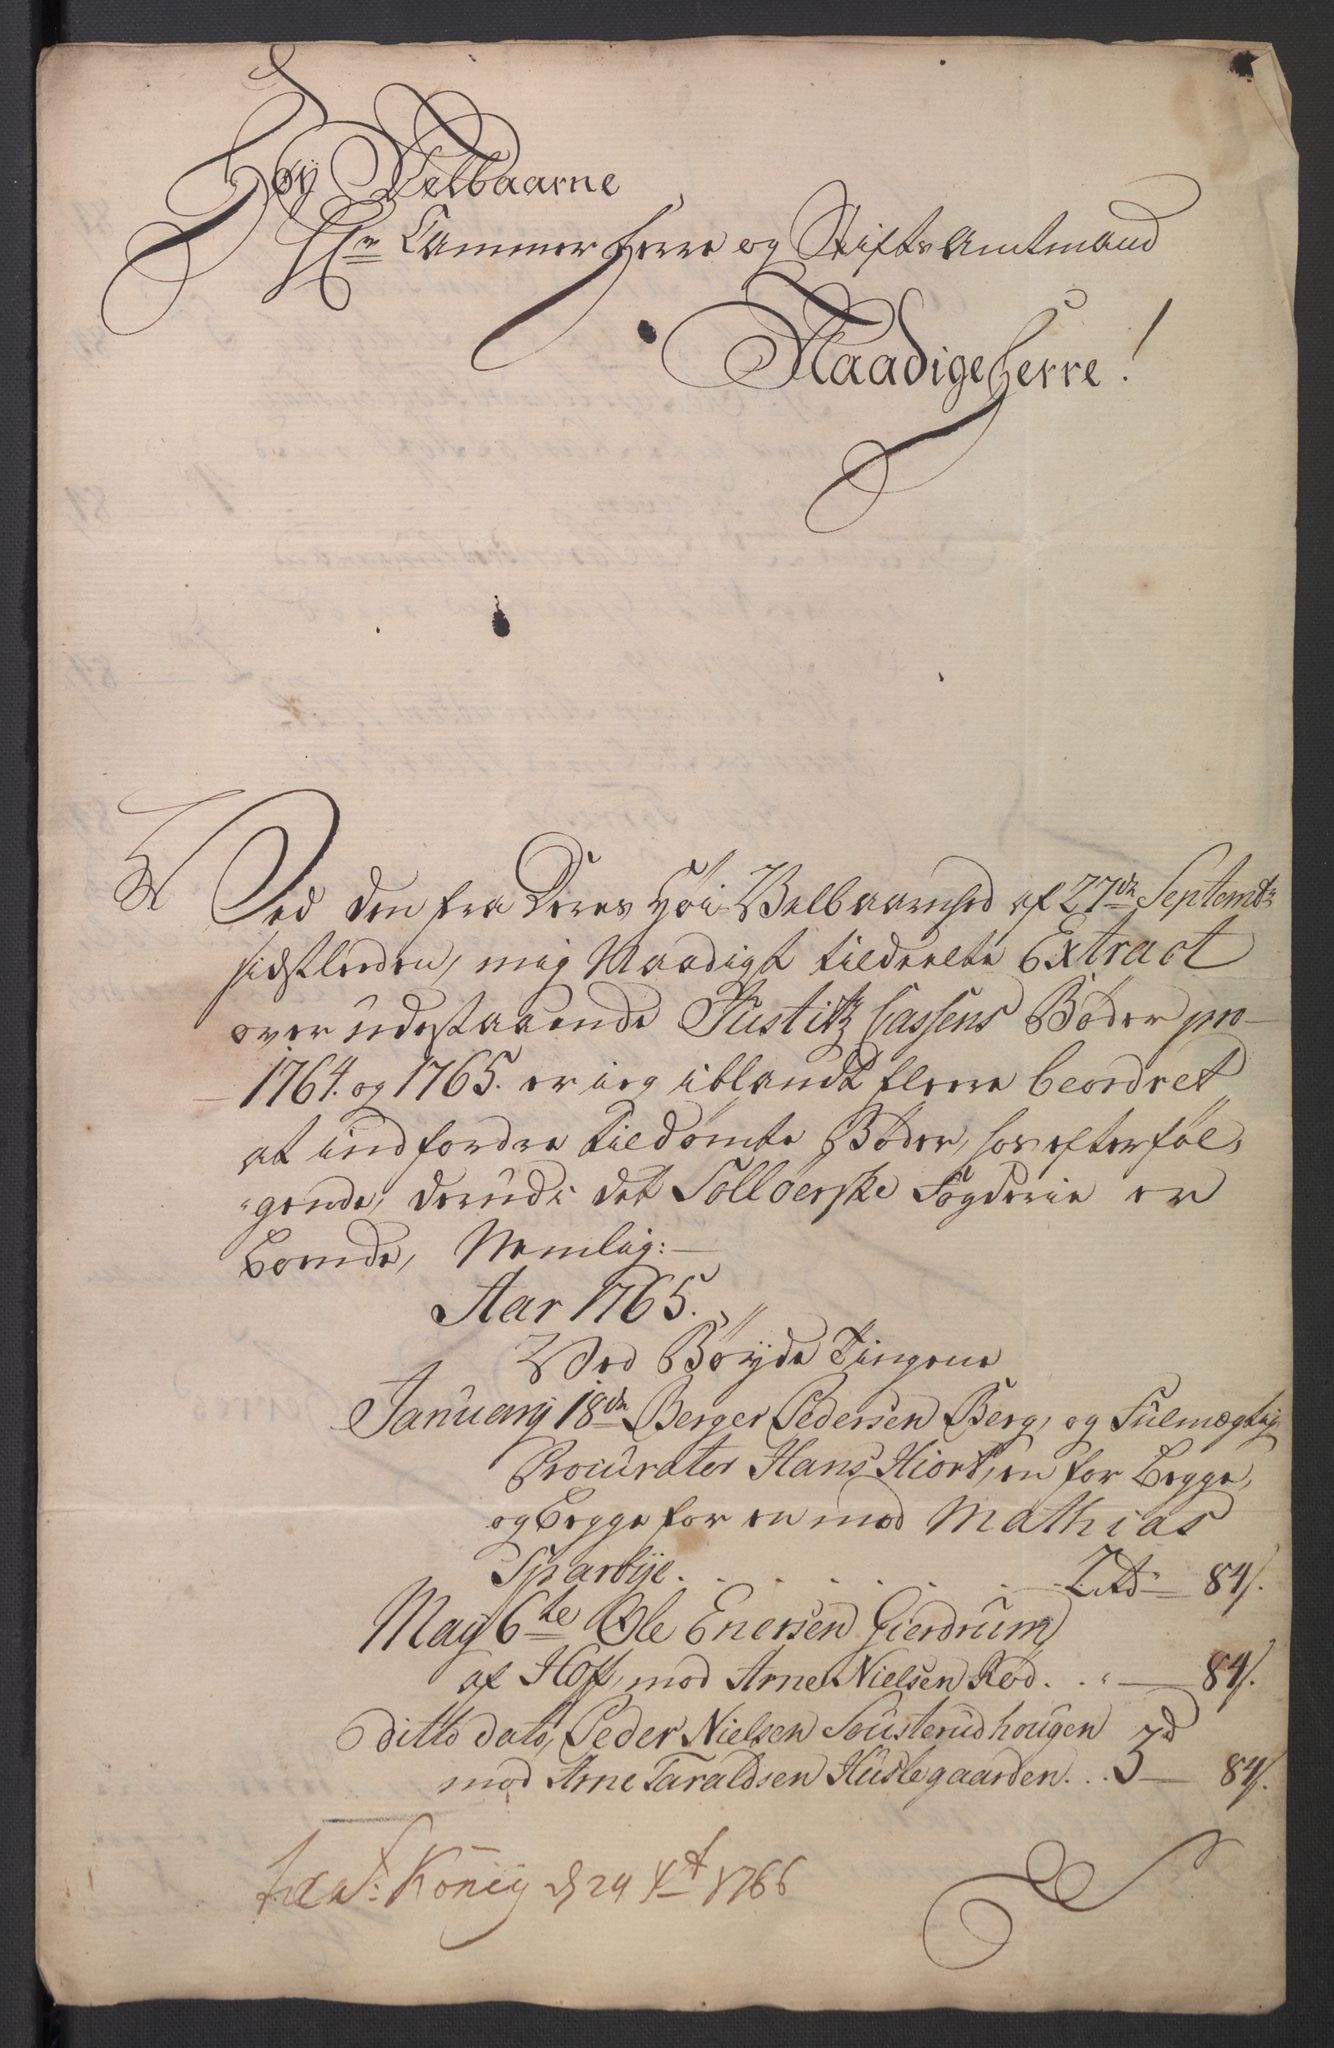 Høy Velbaarne
Hr Cammerherre og Stiftsamtmand
Naadige Herre!
Ved den fra Deres Høi-Velbaarnhed af 27de Septembr
sidstleeden, mig Naadigst tildeelte Extract
over udestaaende Justitz Cassens Bøder pro
1764. og 1765. er ieg iblandt fleere beordret
at indfordre tildømte Bøder, hos efterføl-
gende, der udi det Solløerske Fogderie er
boende, Nemlig:
Aar 1765.
Ved Bøyde Tingene
January 18de Berger Pedersen Berg, og Fulmægtig
Procurator Hans Hiort, en for begge,
og begge for en mod Mathias
Sparbÿe. . . . . . . . 2 rd 84 s.
May 6te Ole Enersen Gierdrum
af Hoff, mod Arne Nielsen Rød. . . 84 s.
ditto dato, Peder Nielsen Sousterudhougen
mod Arne Taraldsen Huslegaarden. . . 3 rd 84 s.
König d 24 1766